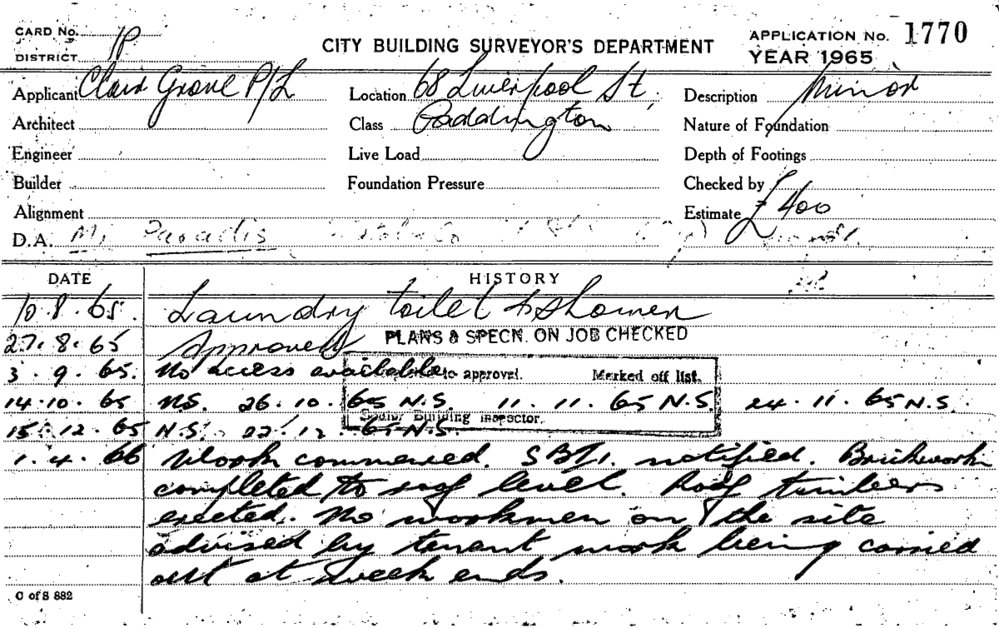 CARD No. 1P
DISTRICT
CITY BUILDING SURVEYOR'S DEPARTMENT
APPLICATION No. 1770
YEAR 1965
Applicant Clair Grove P/L Location 68 Liverpool St, Description Minor
Architect Class Paddington Nature of Foundation
Engineer Live Load Depth of Footings
Builder Foundation Pressure Checked by
Alignment Estimate £400
D.A. Mr Paradis
DATE HISTORY
10.8.65. Laundry toilet & Shower
27.8.65 Approved PLANS & SPECN. ON JOB CHECKED
3.9.65. No access available to approval. Marked off list.
14.10.65 N.S. 26.10.65 N.S 11.11.65 N.S. 24.11.65 N.S.
Senior Building Inspector.
15.12.65 N.S. 22.12.65 N.S.
1.4.66 Work commenced. SBI. notified. Brickwork
completed to roof level. Roof timbers
erected. No workmen on the site
advised by tenant work being carried
out at week ends.
C of S 882